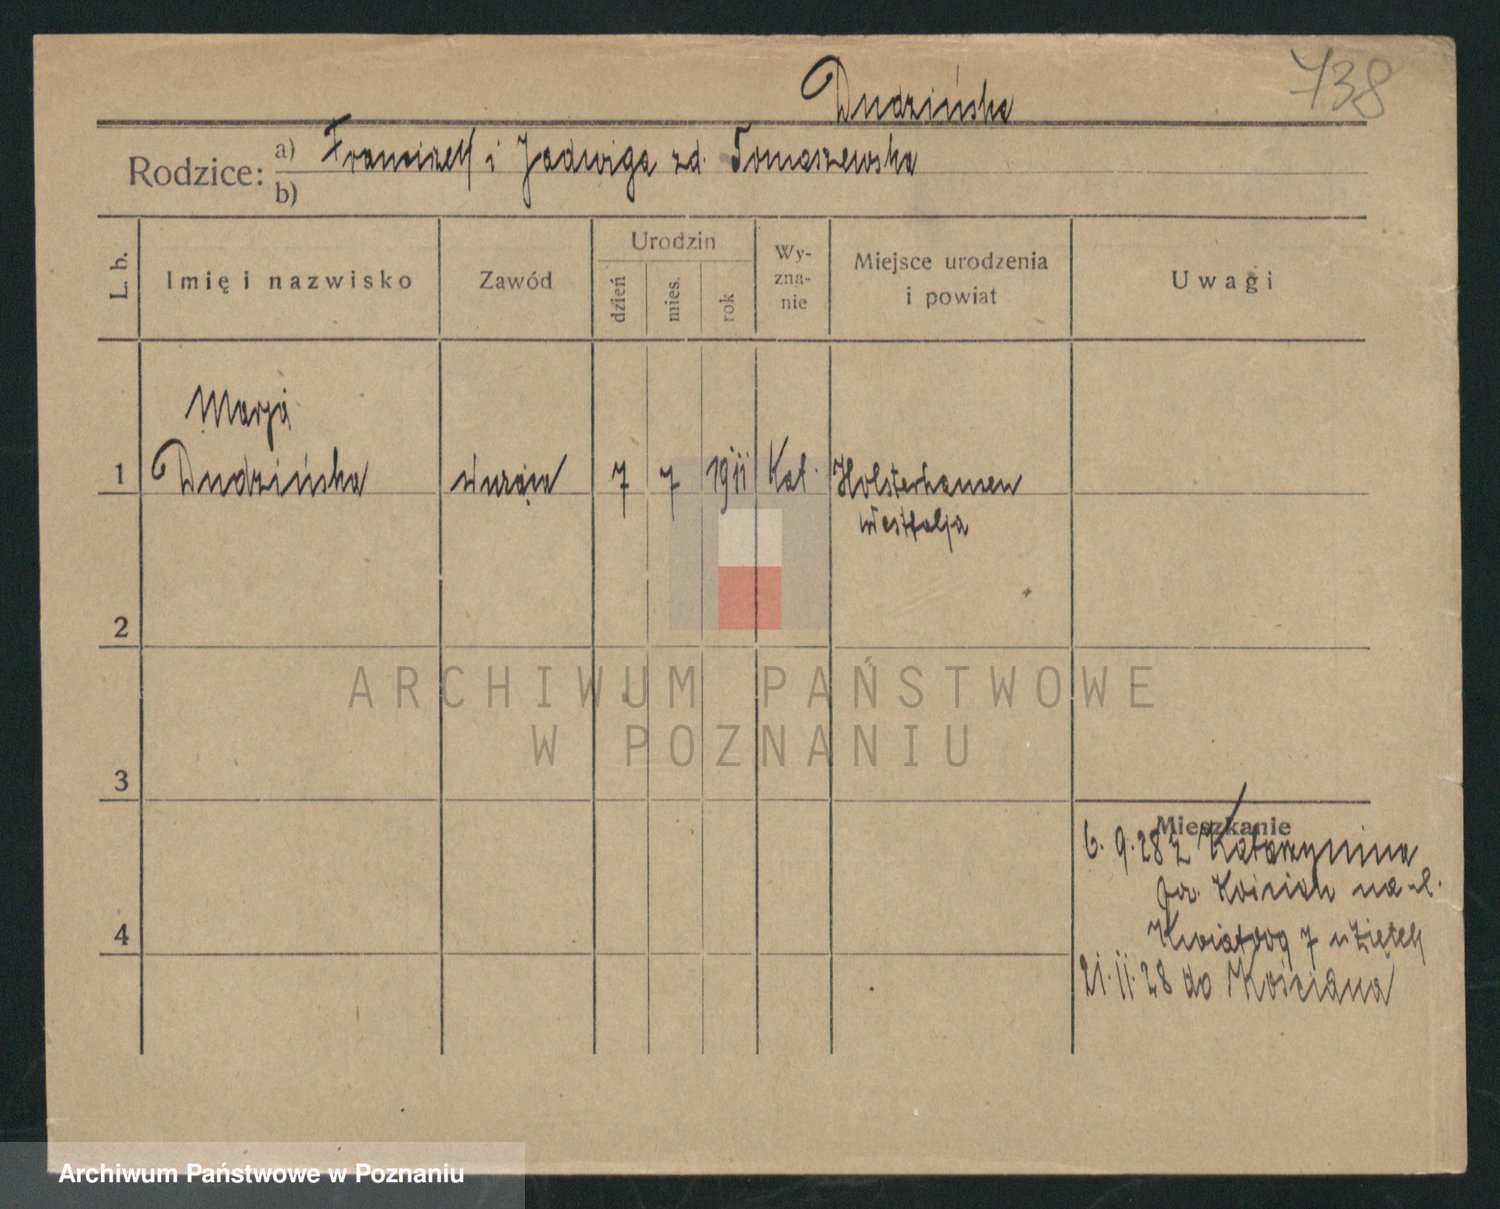 738
Dudzińska
Rodzice: a) Franciszek i Jadwiga zd. Tomaszewska
b)
L. b.
Imię i nazwisko
Zawód
Urodzin
dzień
mies.
rok
Wy-
zna-
nie
Miejsce urodzenia
i powiat
Uwagi
Marja
1 Dudzińska 7 7 1911 Kat. Holsterhausen
Westfalja
2
3
4
Mieszkanie
6.9.28 z Katarzynina
pow. Kościan na ul.
Kwiatową 7
21.11.28 do Kościana
ARCHIWUM PAŃSTWOWE
W POZNANIU
Archiwum Państwowe w Poznaniu